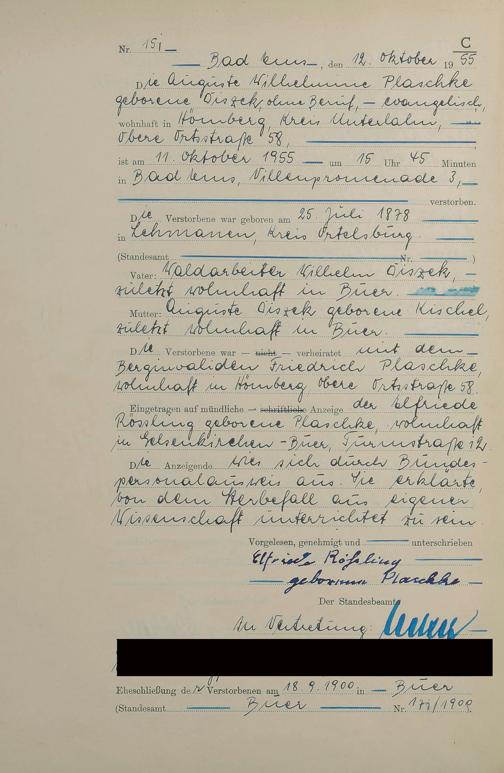 C
Nr. 151
Bad Ems, den 12. Oktober 1955
Die Auguste Wilhelmine Plaschke
geborene Diszek, ohne Beruf, - evangelisch,
wohnhaft in Hömberg, Kreis Unterlahn,
Obere Ortsstraße 58,
ist am 11. Oktober 1955 um 15 Uhr 45 Minuten
in Bad Ems, Villenpromenade 3,
verstorben.
Die Verstorbene war geboren am 25. Juli 1878
in Lehmanen, Kreis Ortelsburg.
(Standesamt Nr. )
Vater: Waldarbeiter Wilhelm Diszek,
zuletzt wohnhaft in Buer.
Mutter: Auguste Diszek geborene Kischel,
zuletzt wohnhaft in Buer.
Die Verstorbene war — nicht — verheiratet mit dem
Berginvaliden Friedrich Plaschke,
wohnhaft in Hömberg Obere Ortsstraße 58.
Eingetragen auf mündliche — schriftliche Anzeige der Elfriede
Rössling geborene Plaschke, wohnhaft
in Gelsenkirchen-Buer, Turmstraße 12.
Die Anzeigende wies sich durch Bundes-
personalausweis aus. Sie erklärte,
von dem Sterbefall aus eigener
Wissenschaft unterrichtet zu sein.
Vorgelesen, genehmigt und unterschrieben
Elfriede Rößling
geborene Plaschke
Der Standesbeamte
In Vertretung:
Eheschließung der Verstorbenen am 18.9.1900 in Buer
(Standesamt Buer Nr. /1900